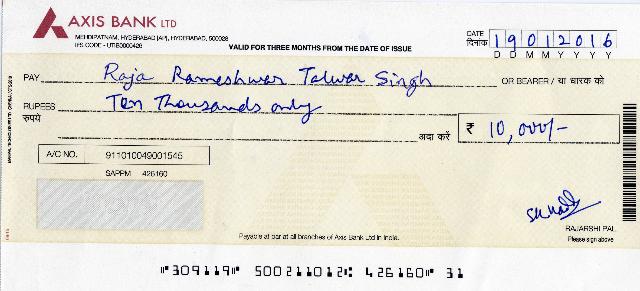 AXIS BANK LTD
MEHDIPATNAM, HYDERABAD [AP], HYDERABAD, 500028
IFS CODE - UTIB0000426
VALID FOR THREE MONTHS FROM THE DATE OF ISSUE
DATE
दिनांक
19012016
D D M M Y Y Y Y
PAY Raja Rameshwar Talwar Singh OR BEARER / या धारक को
RUPEES Ten Thousands only
रुपये
अदा करें ₹ 10,000/-
A/C NO. 911010049001545
SAPPM 426160
RAJARSHI PAL
Please sign above
Payable at par at all branches of Axis Bank Ltd in India.
⑈309119⑈ 500211012⑆ 426160⑈ 31